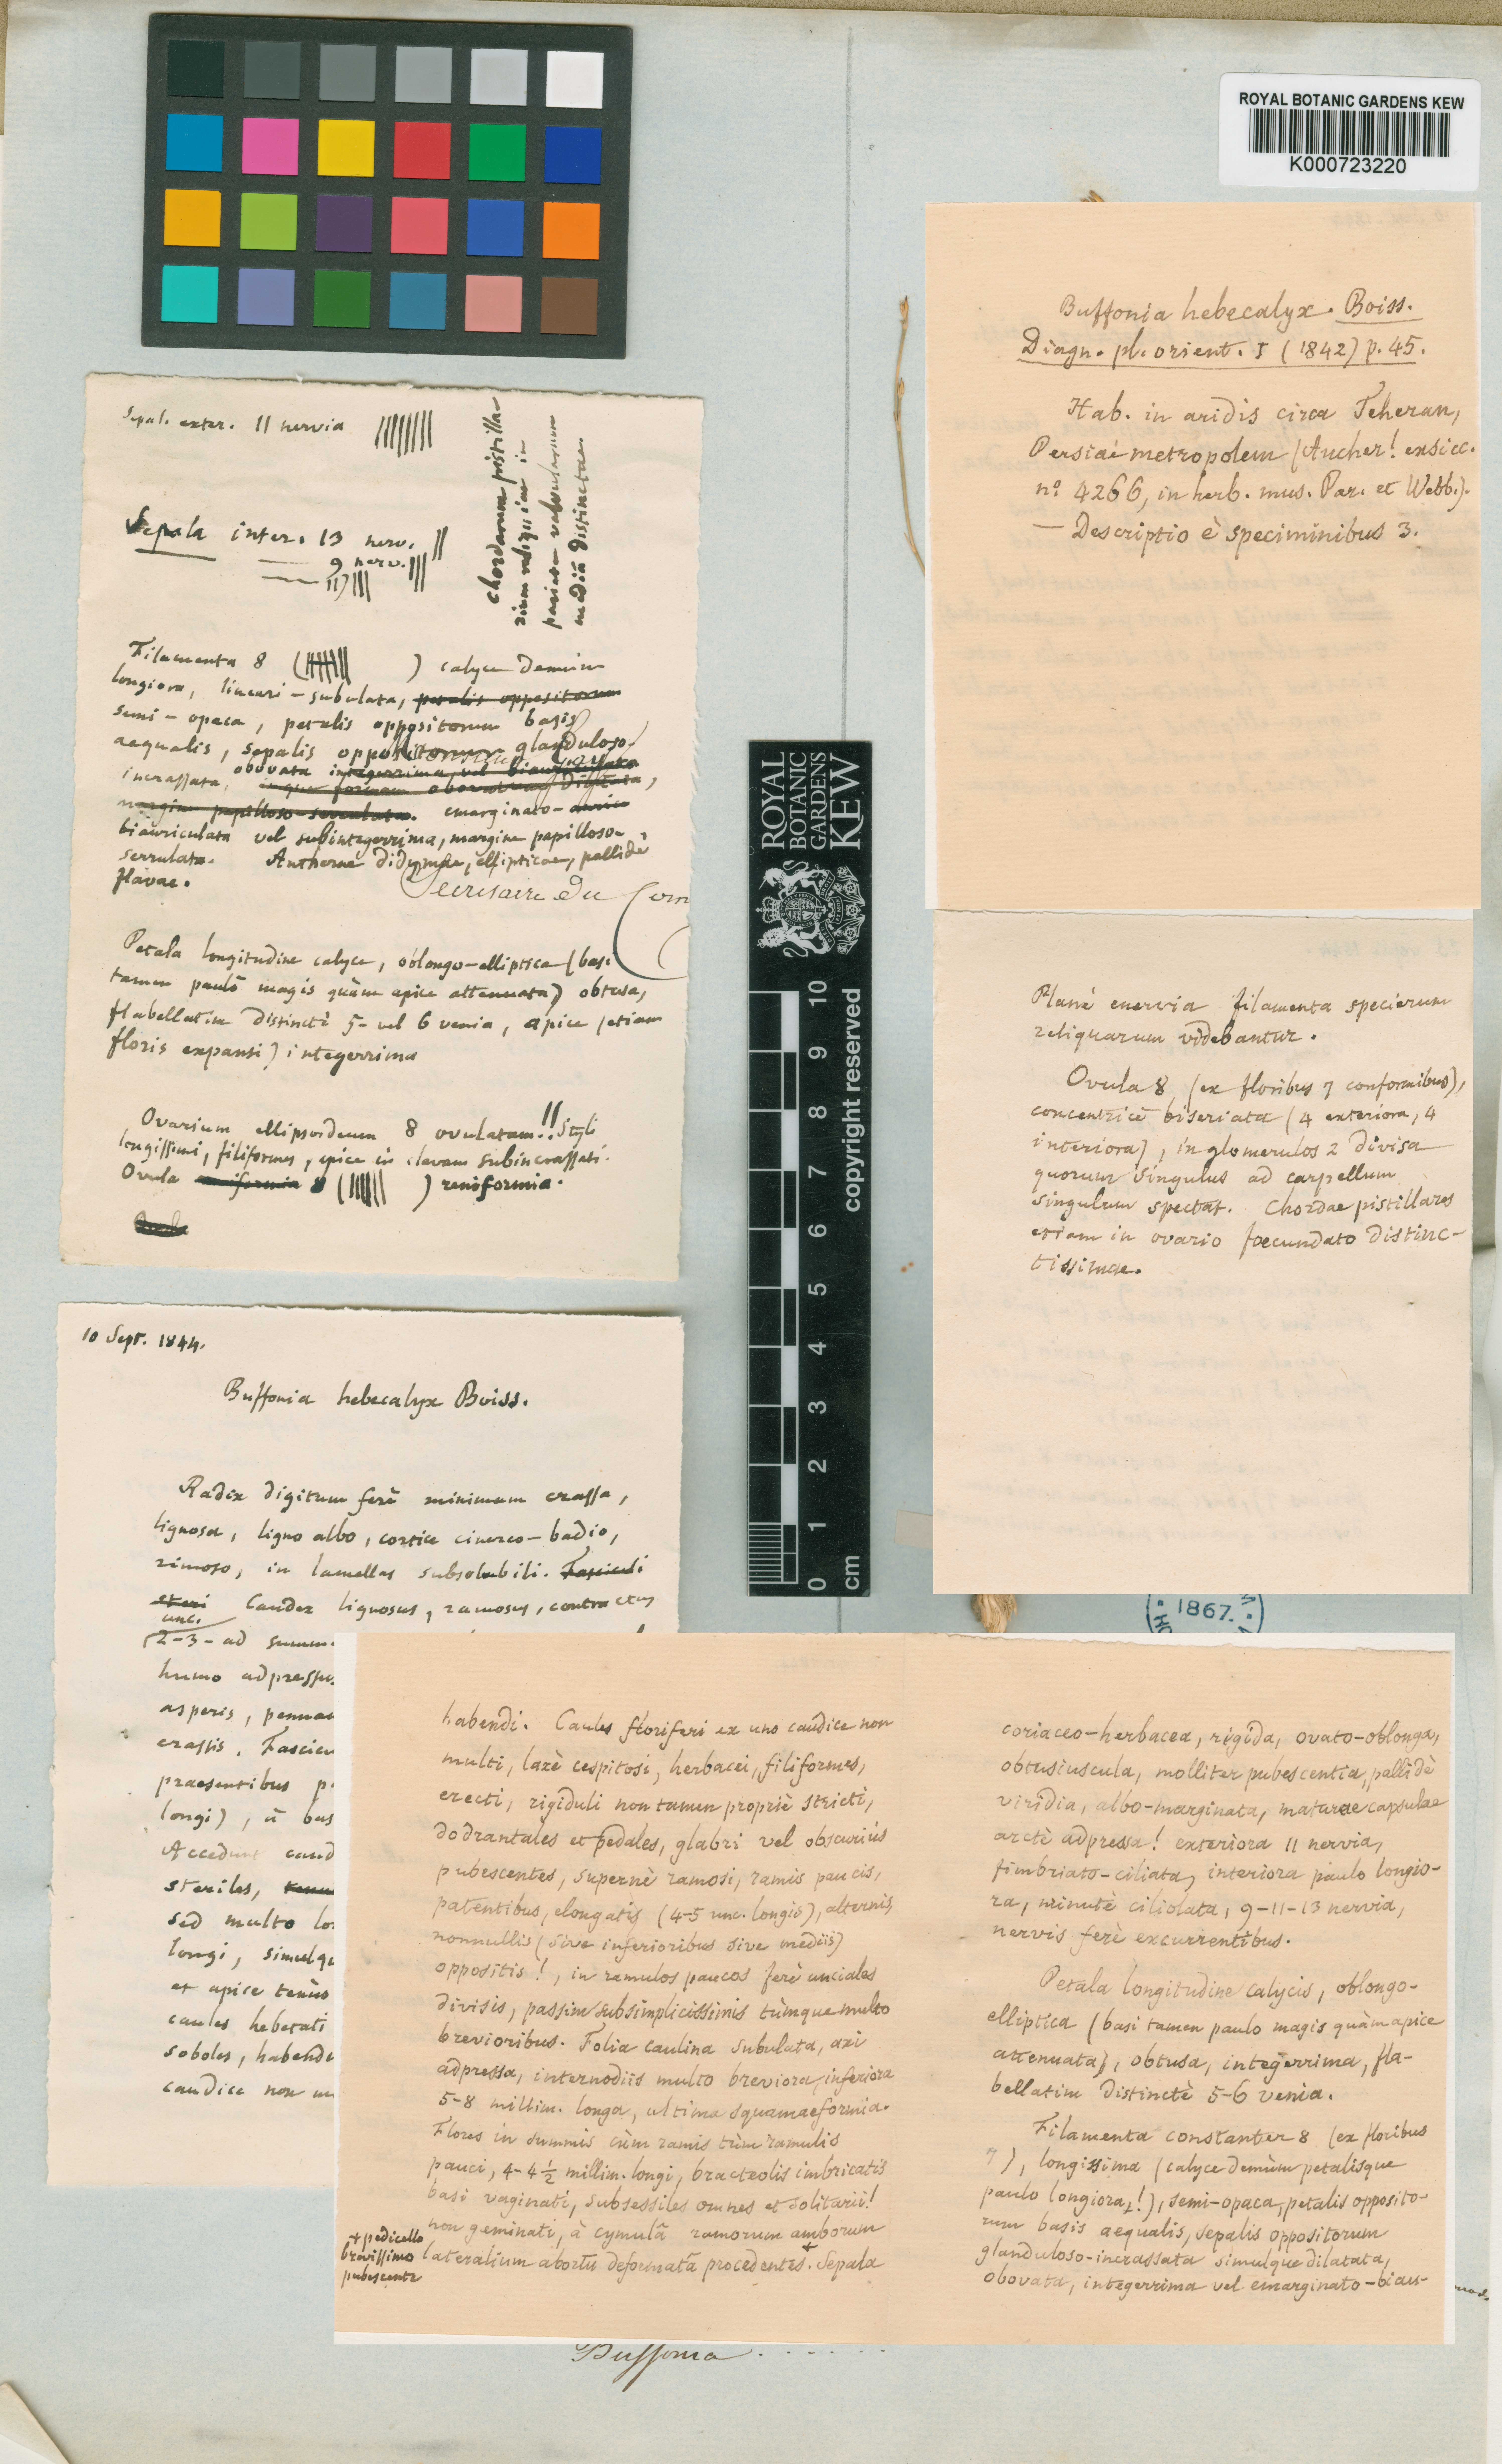 ROYAL BOTANIC GARDENS KEW
K000723220
Buffonia hebecalyx. Boiss.
Diagn. pl. orient. I (1842) p. 45.
Hab. in aridis circa Teheran,
Persiae metropolem (Aucher! exsicc.
nº 4266, in herb. mus. Par. et Webb.).
— Descriptio è speciminibus 3.
Sepal. exter. 11 nervia
Sepala inter. 13 nerv.
— 9 nerv.
— 11
chordarum pistilla-
rium reliquiae in
pariete valvularum
mediâ distinctae
Filamenta 8 ( ) calyce demùm
longiora, lineari-subulata, petalis oppositorum
semi-opaca, petalis oppositorum basis
aequalis, sepalis oppositorum glanduloso-
incrassata, obovata integerrima vel biauriculata
inque formam obovatam dilatata,
margine papilloso-serrulata. emarginato-
biauriculata vel subintegerrima, margine papilloso-
serrulata. Antherae didymae, ellipticae, pallidè
flavae.
Secretaire du Com
Petala longitudine calyce, oblongo-elliptica (basi
tamen paulò magis quàm apice attenuata) obtusa,
flabellatim distinctè 5- vel 6 venia, apice (etiam
floris expansi) integerrima
Ovarium ellipsoideum 8 ovulatum!! Styli
longissimi, filiformes, apice in clavam subincrassati.
Ovula reniformia 8 ( ) reniformia.
Ovula
10 Sept. 1844.
Buffonia hebecalyx Boiss.
Radix digitum ferè minimum crassa,
lignosa, ligno albo, cortice cinereo-badio,
rimoso, in lamellas subsolubili. Fasciculi
steri Caudex lignosus, ramosus, contractus
unc.
(2-3- ad summ
humo adpressus
asperis, pennae
crassis. Fascicu
praesentibus p
longi), à bas
Accedunt caud
steriles, tenui
sed multo lon
longi, simulqu
et apice tenùs
caules hebetati
soboles, habendi
caudice non mu
ROYAL
BOTANIC
GARDENS
KEW
copyright reserved
0 1 2 3 4 5 6 7 8 9 10
cm
Planè enervia filamenta specierum
reliquarum videbantur.
Ovula 8 (ex floribus 7 conformibus),
concentricè biseriata (4 exteriora, 4
interiora), in glomerulos 2 divisa
quorum singulus ad carpellum
singulum spectat. Chordae pistillares
etiam in ovario foecundato distinc-
tissimae.
1867.
habendi. Caules floriferi ex uno caudice non
multi, laxè cespitosi, herbacei, filiformes,
erecti, rigiduli non tamen propriè stricti,
dodrantales et pedales, glabri vel obscuriùs
pubescentes, supernè ramosi, ramis paucis,
patentibus, elongatis (4-5 unc. longis), alternis,
nonnullis (sive inferioribus sive mediis)
oppositis!, in ramulos paucos ferè unciales
divisis, passim subsimplicissimis tùmque multo
brevioribus. Folia caulina subulata, axi
adpressa, internodiis multo breviora, inferiora
5-8 millim. longa, ultima squamaeformia.
Flores in summis cùm ramis tùm ramulis
pauci, 4-4 ½ millim. longi, bracteolis imbricatis
basi vaginati, subsessiles omnes et solitarii!
non geminati, à cymulâ ramorum amborum
lateralium abortu deformatâ procedentes+. Sepala
+ pedicello
brevissimo
pubescente
coriaceo-herbacea, rigida, ovato-oblonga,
obtusiuscula, molliter pubescentia, pallidè
viridia, albo-marginata, maturae capsulae
arctè adpressa! exteriora 11 nervia,
fimbriato-ciliata, interiora paulo longio-
ra, minutè ciliolata, 9-11-13 nervia,
nervis ferè excurrentibus.
Petala longitudine calycis, oblongo-
elliptica (basi tamen paulo magis quàm apice
attenuata), obtusa, integerrima, fla-
bellatim distinctè 5-6 venia.
Filamenta constanter 8 (ex floribus
7), longissima (calyce demùm petalisque
paulo longiora!), semi-opaca, petalis opposito-
rum basis aequalis, sepalis oppositorum
glanduloso-incrassata simulque dilatata,
obovata, integerrima vel emarginato-biau-
Buffonia . . . . . .